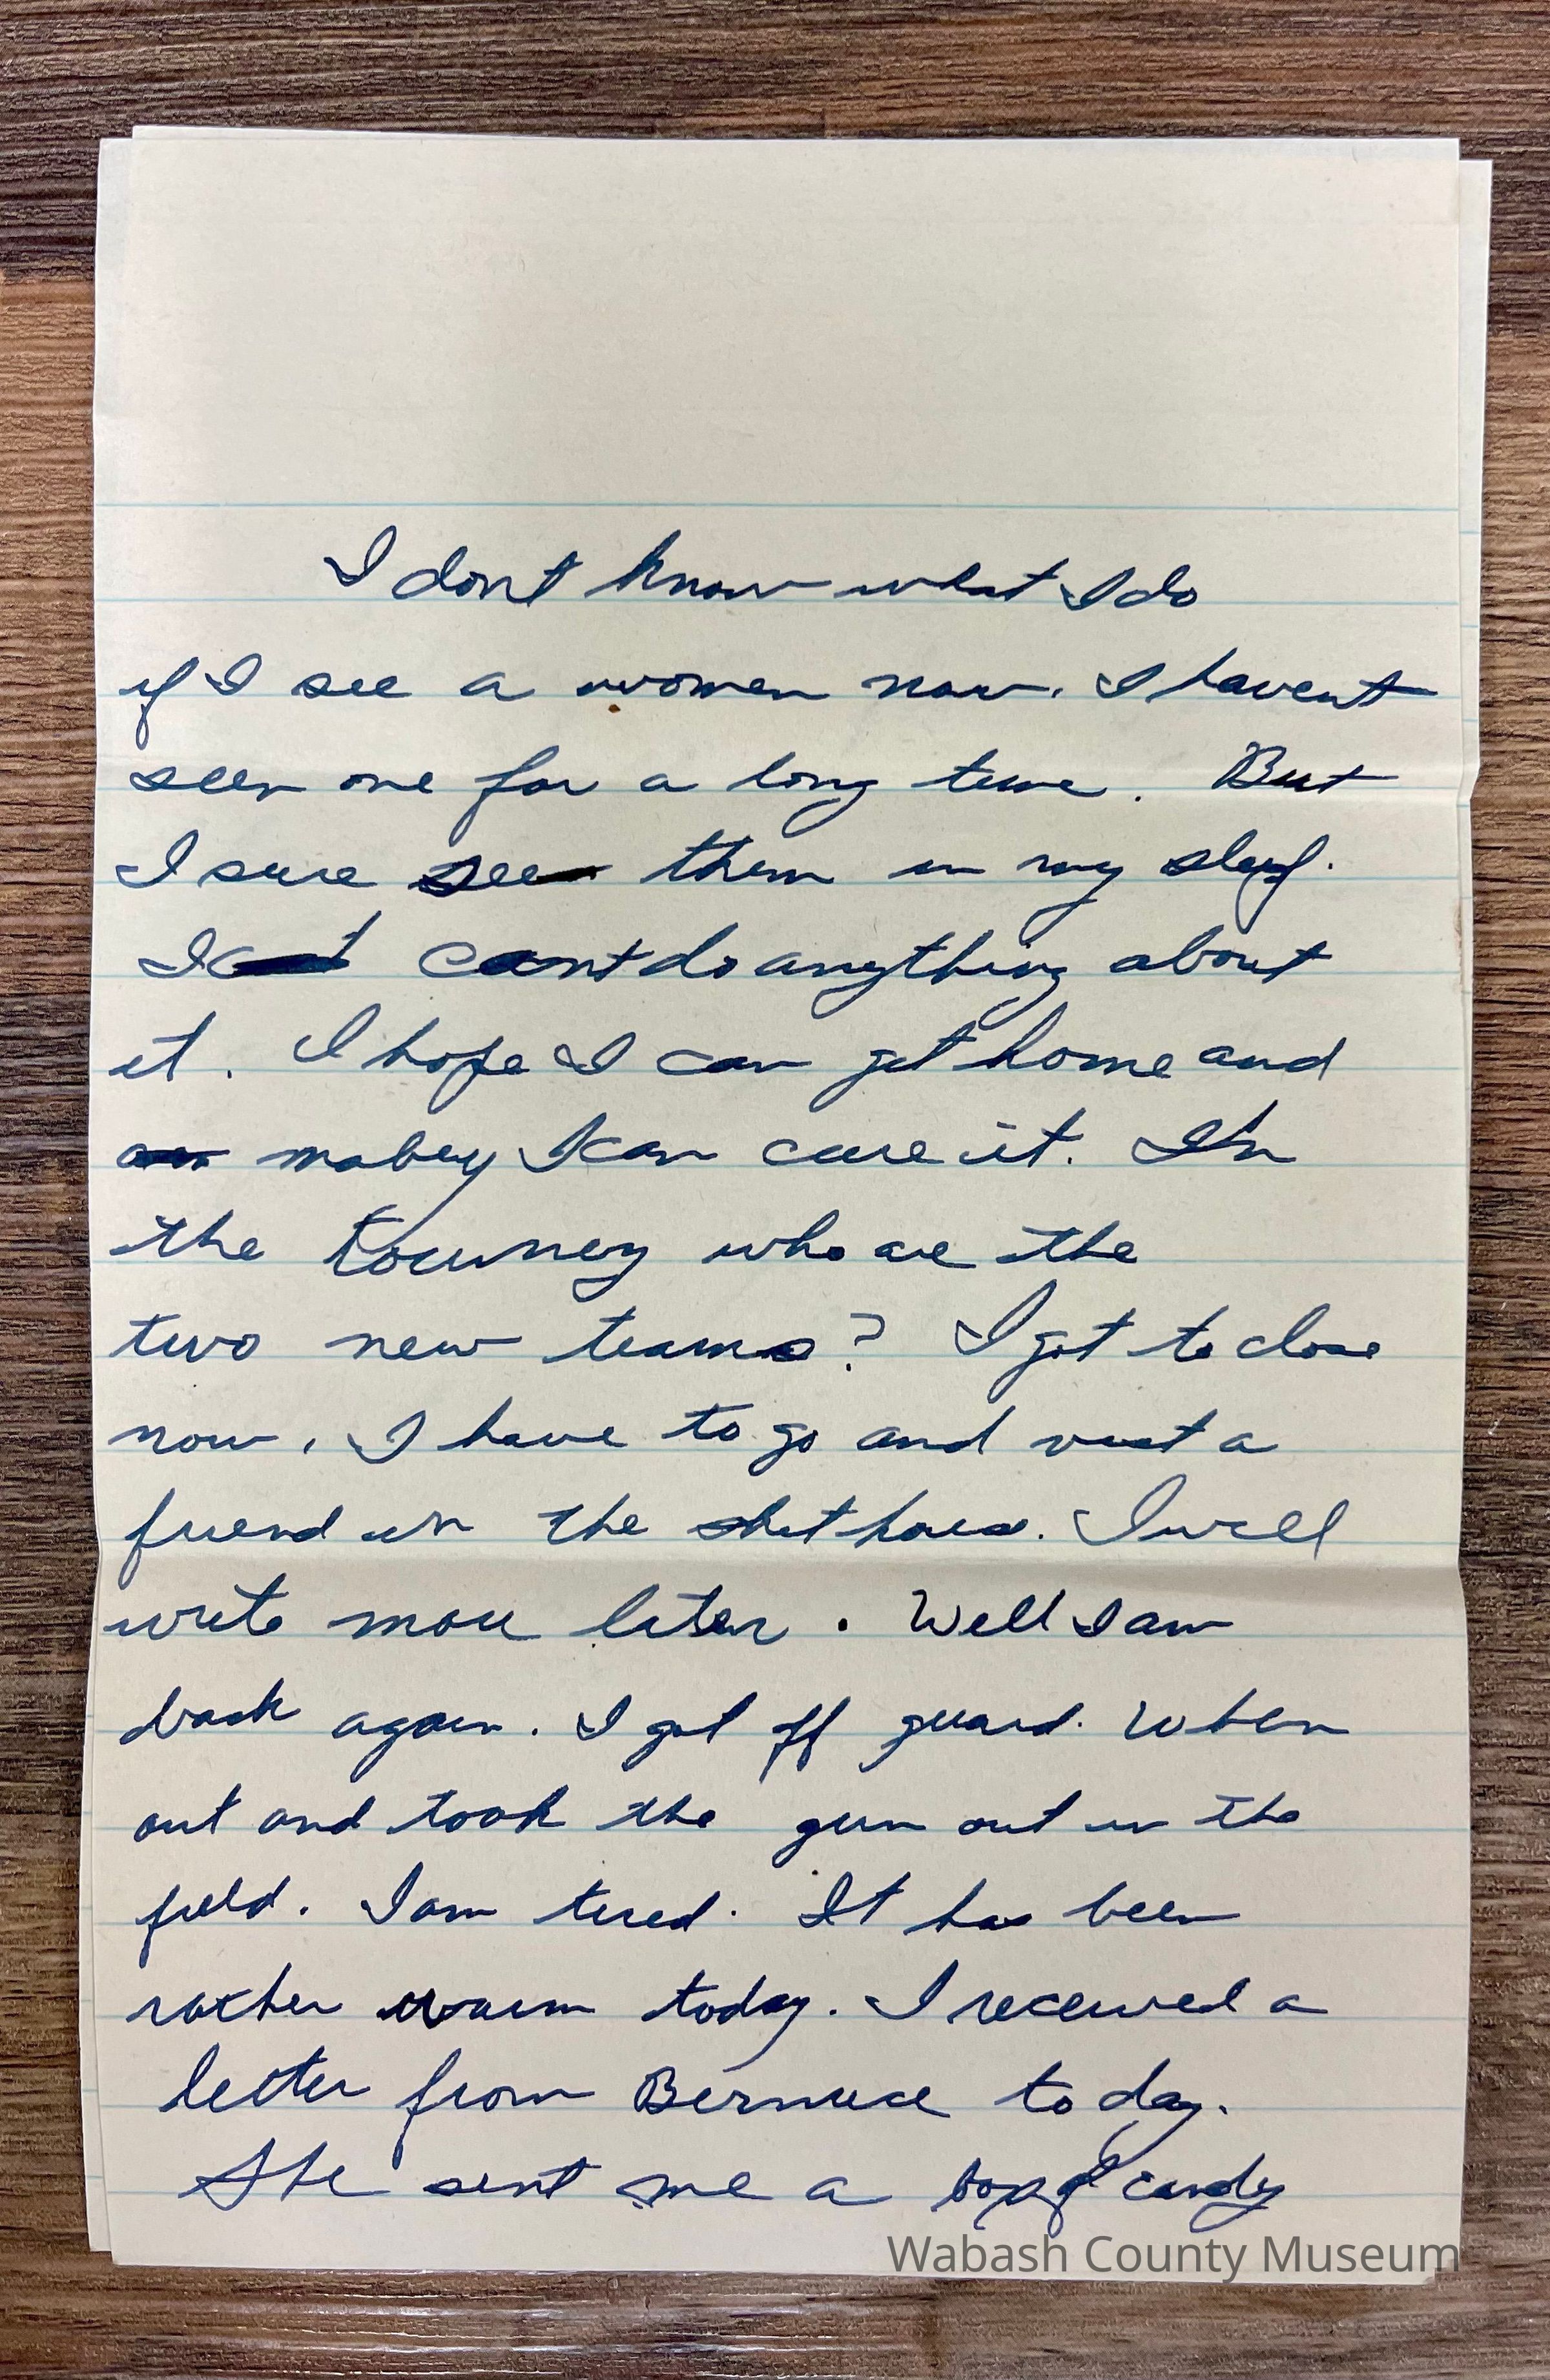 I dont know what I do
if I see a women now. I havent
seen one for a long time. But
I sure see them in my sleep.
I cant do anything about
it. I hope I can get home and
mabey I can cure it. In
the tourney who are the
two new teams? I got to close
now. I have to go and visit a
friend in the shit house. I will
write more later. Well I am
back again. I got off guard. When
out and took the gun out in the
field. I am tired. It has been
rather warm today. I received a
letter from Bernice today.
She sent me a box of candy
Wabash County Museum